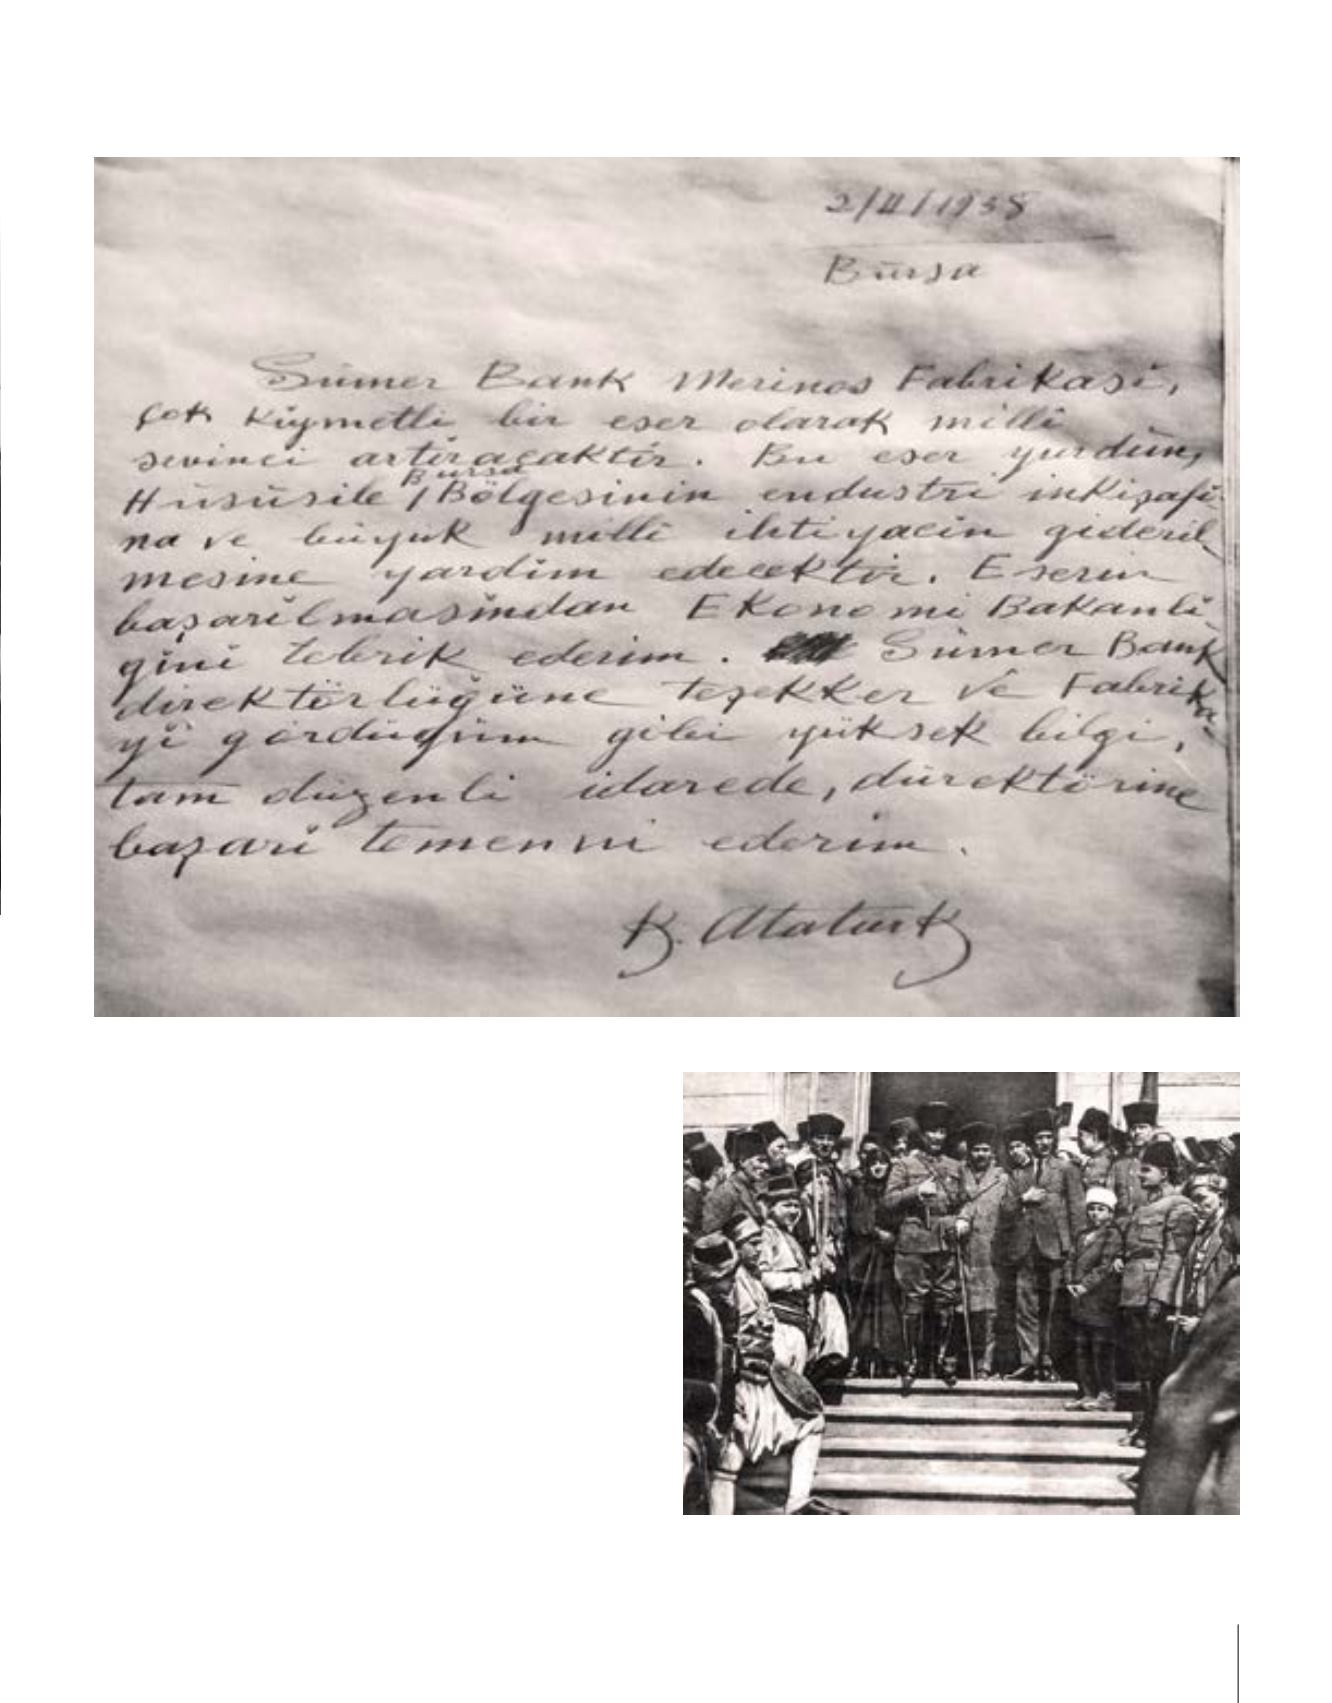 2/II/1938
Bursa
Sümer Bank Merinos Fabrikasi,
çok kiymetli bir eser olarak milli
sevinci artiracaktir. Bu eser yurdun,
Hususile Bursa Bölgesinin endustri inkişafi-
na ve büyük milli ihtiyacin gideril-
mesine yardim edecektir. Eserin
başarilmasindan Ekonomi Bakanli-
ğini tebrik ederim. Sümer Bank
direktörlüğüne teşekker ve Fabrika-
yi gördüğüm gibi yüksek bilgi,
tam düzenli idarede, direktörine
başari temenni ederim.
K. Atatürk